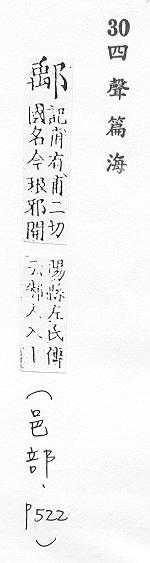 30 四聲篇海
鄅
記甫有甫二切
國名今琅邪開
陽縣左氏傳
云鄅人入丨
(邑部、p522)